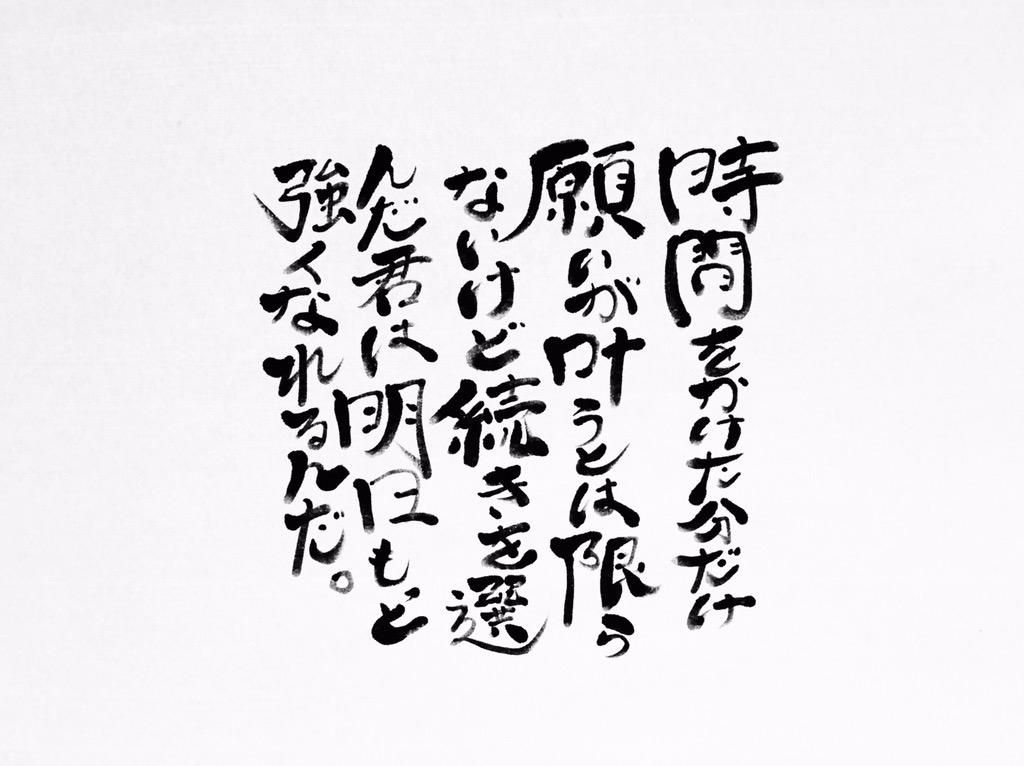 時間をかけた分だけ
願いが叶うとは限ら
ないけど続きを選
んだ君は明日もっと
強くなれるんだ。